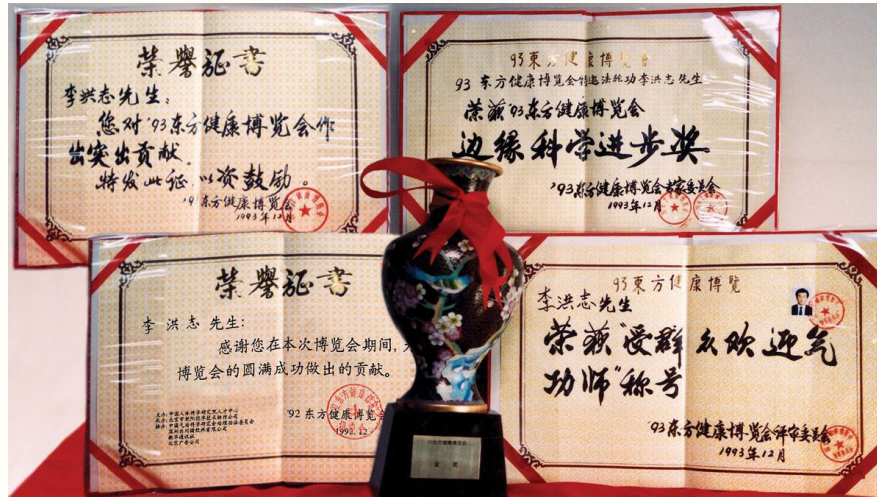 荣誉证书
李洪志先生:
您对'93东方健康博览会作
出突出贡献.
特发此证,以资鼓励。
东方健康博览会
1993年12月
93東方健康博览會
93 东方健康博览会 法轮功李洪志先生
荣获'93东方健康博览会
边缘科学进步奖.
'93东方健康博览会 委员会
1993年12月
荣誉证书
李 洪 志 先生:
感谢您在本次博览会期间,
博览会的圆满成功做出的贡献。
'92 东方健康博览会
1992.12
93東方健康博览
李洪志先生
荣获"受群众欢迎气
功师"称号
'93东方健康博览会评审委员会
1993年12月
金 奖